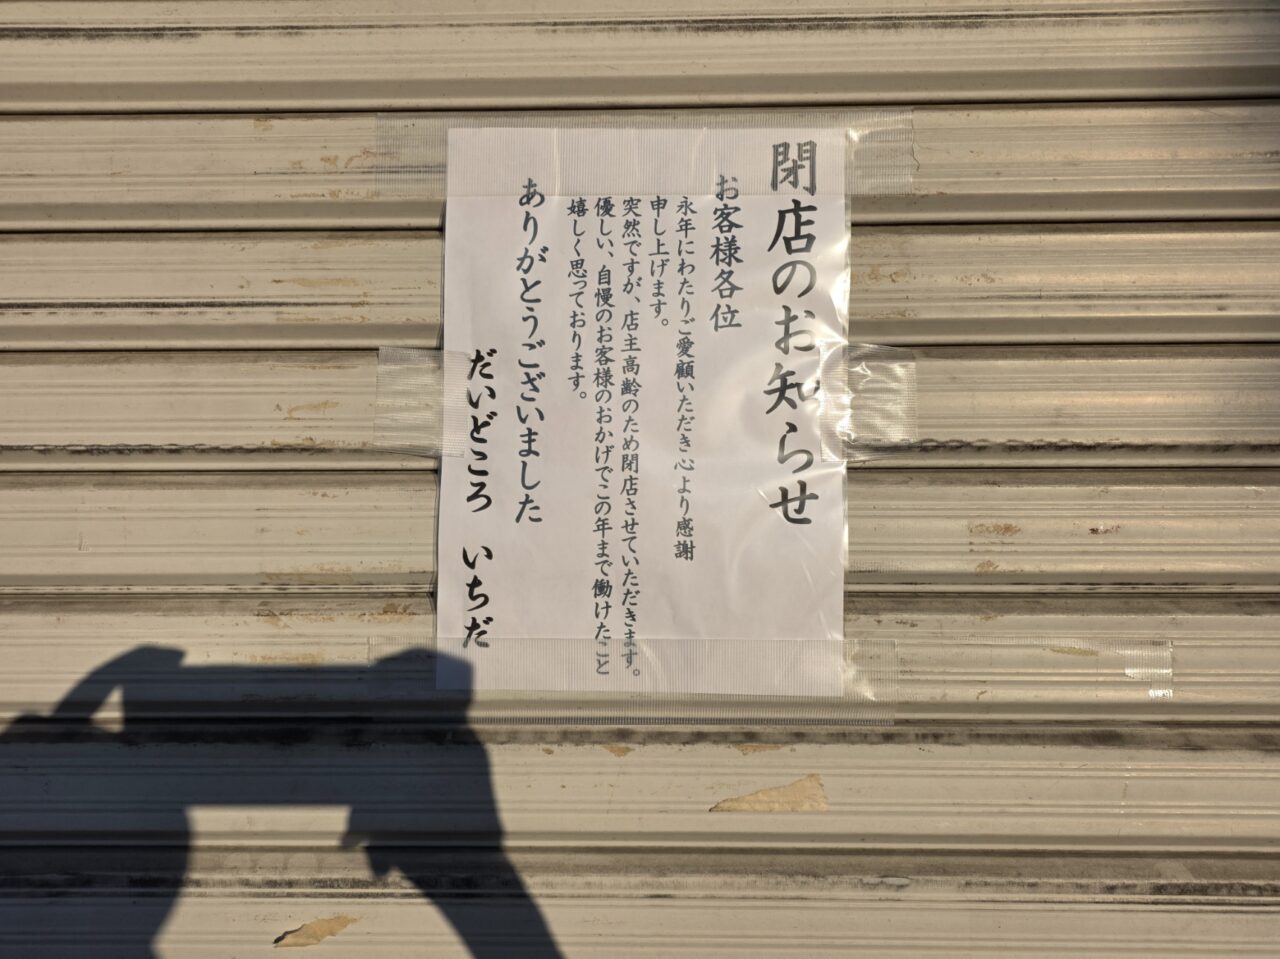 閉店のお知らせ
お客様各位
永年にわたりご愛顧いただき心より感謝
申し上げます。
突然ですが、店主高齢のため閉店させていただきます。
優しい、自慢のお客様のおかげでこの年まで働けたこと
嬉しく思っております。
ありがとうございました
だいどころ　いちだ